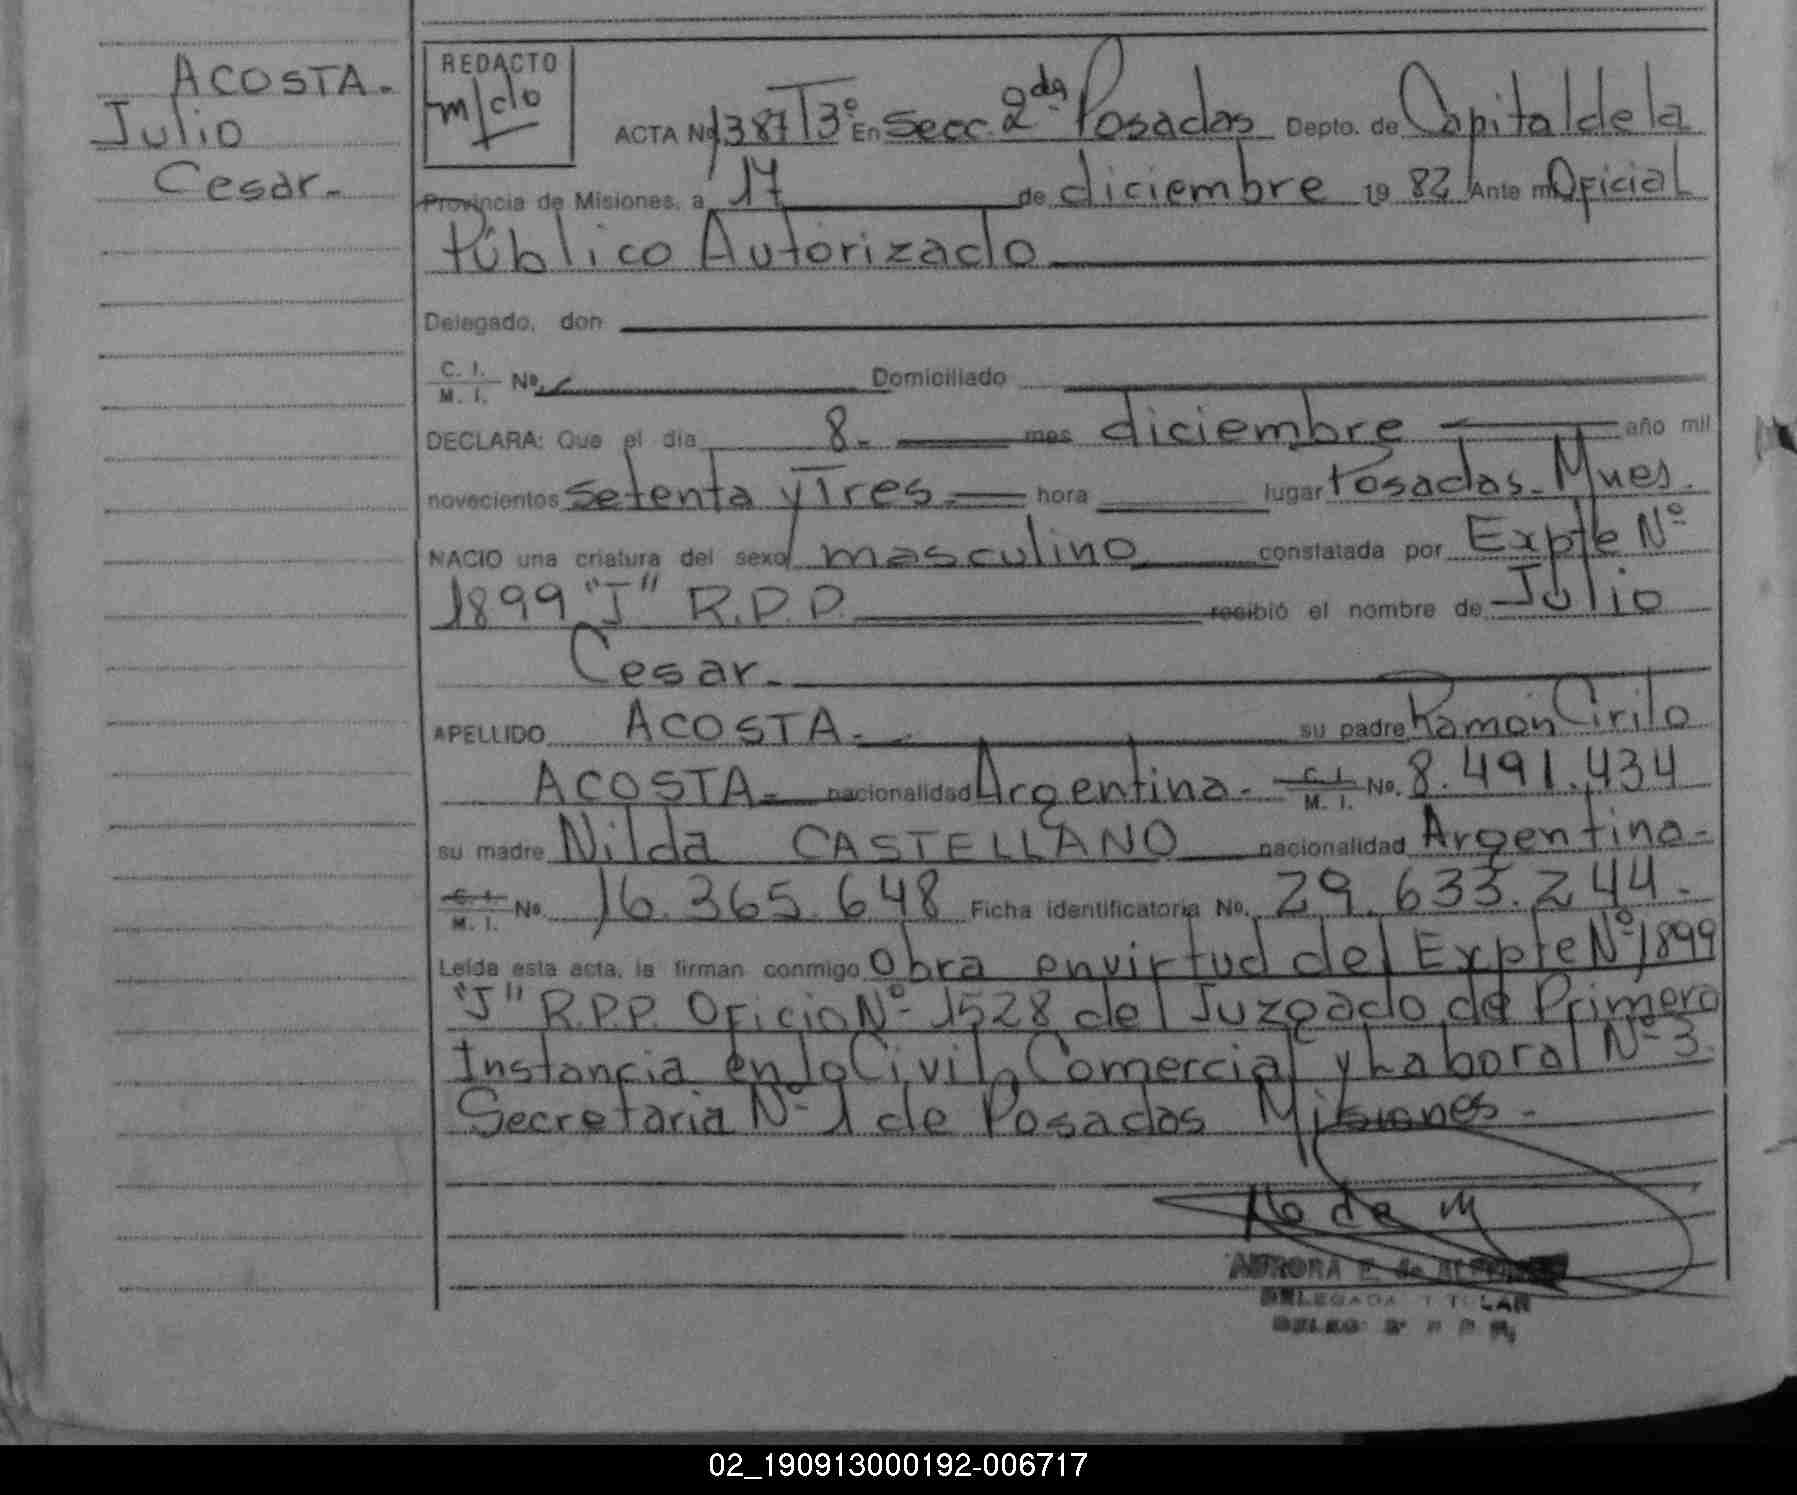 ACOSTA.
Julio
Cesar.
REDACTO
m/do
ACTA Nº 1387 T3º En Secc. 2da Posadas Depto. de Capital de la
Provincia de Misiones, a 17 de diciembre 19 82 Ante mi Oficial
Público Autorizado
Delegado, don
C. I.
M. I. Nº Domiciliado
DECLARA: Que el día 8. mes diciembre año mil
novecientos setenta y Tres hora lugar Posadas. Mnes.
NACIO una criatura del sexo masculino constatada por Expte Nº
1899 "J" R.P.P. recibió el nombre de Julio
Cesar.
APELLIDO ACOSTA. su padre Ramón Cirilo
ACOSTA nacionalidad Argentina. C. I. M. I. No. 8.491.434
su madre Nilda CASTELLANO nacionalidad Argentina.
C. I. M. I. No. 16.365.648 Ficha identificatoria No. 29.633.244.
Leída esta acta, la firman conmigo Obra en virtud del Expte Nº 1899
"J" R.P.P. Oficio Nº 1528 del Juzgado de Primera
Instancia en lo Civil, Comercial y Laboral Nº 3.
Secretaria Nº 1 de Posadas Misiones.
AURORA E. de
DELEGADA TITULAR
DELEG. 2ª R P P
02_190913000192-006717